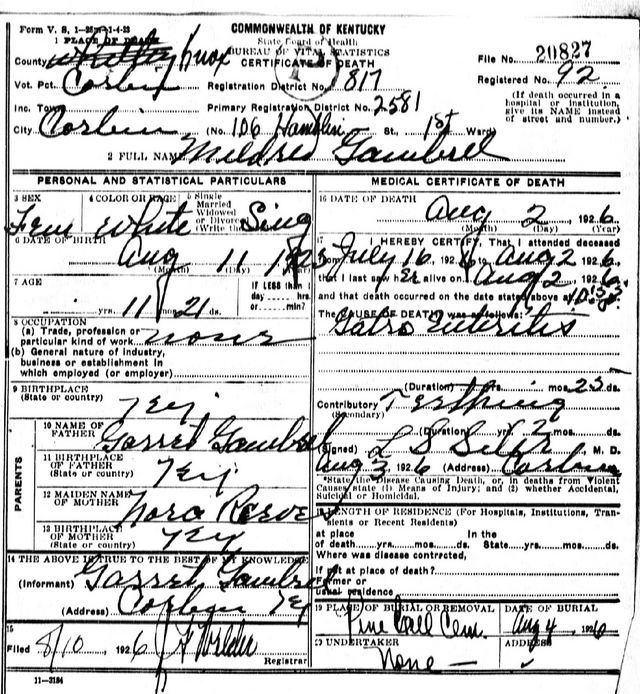 Form V. S. 1-
COMMONWEALTH OF KENTUCKY
1 PLACE OF DEATH
State Board of Health
BUREAU OF VITAL STATISTICS
CERTIFICATE OF DEATH
County Whitley Knox
File No. 20827
Vot. Pct. Corbin
Registration District No. 817
Registered No. 92
(If death occurred in a hospital or institution, give its NAME instead of street and number.)
Inc. Town
Primary Registration District No. 2581
City Corbin (No. 106 Hamblin St., 1st Ward)
2 FULL NAME Mildred Gambrel
PERSONAL AND STATISTICAL PARTICULARS
3 SEX
Fem
4 COLOR OR RACE
White
5 Single Married Widowed or Divorced (Write the
Sing
6 DATE OF BIRTH
Aug 11 1925
(Month) (Day) (Year)
7 AGE
yrs. 11 mos. 21 ds.
IF LESS than 1 day hrs. or min.?
8 OCCUPATION
(a) Trade, profession or particular kind of work none
(b) General nature of industry, business or establishment in which employed (or employer)
9 BIRTHPLACE
(State or country)
Ky
PARENTS
10 NAME OF FATHER
Garret Gambrel
11 BIRTHPLACE OF FATHER
(State or country)
Ky
12 MAIDEN NAME OF MOTHER
Nora
13 BIRTHPLACE OF MOTHER
(State or country)
Ky
14 THE ABOVE IS TRUE TO THE BEST OF MY KNOWLEDGE
(Informant) Garret Gambrel
(Address) Corbin Ky
15
Filed 8/10 1926
Registrar
11-3184
MEDICAL CERTIFICATE OF DEATH
16 DATE OF DEATH
Aug 2, 1926
(Month) (Day) (Year)
17 I HEREBY CERTIFY, That I attended deceased
from July 16, 1926 to Aug 2 1926,
that I last saw her alive on Aug 2, 1926,
and that death occurred on the date stated above at
The CAUSE OF DEATH was as follows:
Gatro Enteritis
(Duration) yrs. mos. 25 ds.
Contributory Teething
(Secondary)
(Duration) yrs. mos. ds.
(Signed) M. D.
Aug 3 1926 (Address) Corbin
*State the Disease Causing Death, or, in deaths from Violent Causes state (1) Means of Injury; and (2) whether Accidental, Suicidal or Homicidal.
18 LENGTH OF RESIDENCE (For Hospitals, Institutions, Transients or Recent Residents)
at place of death yrs. mos. ds.
In the State yrs. mos. ds.
Where was disease contrcted,
If not at place of death?
Former or usual residence
19 PLACE OF BURIAL OR REMOVAL
Cem.
DATE OF BURIAL
Aug 4, 1926
20 UNDERTAKER
None
ADDRESS